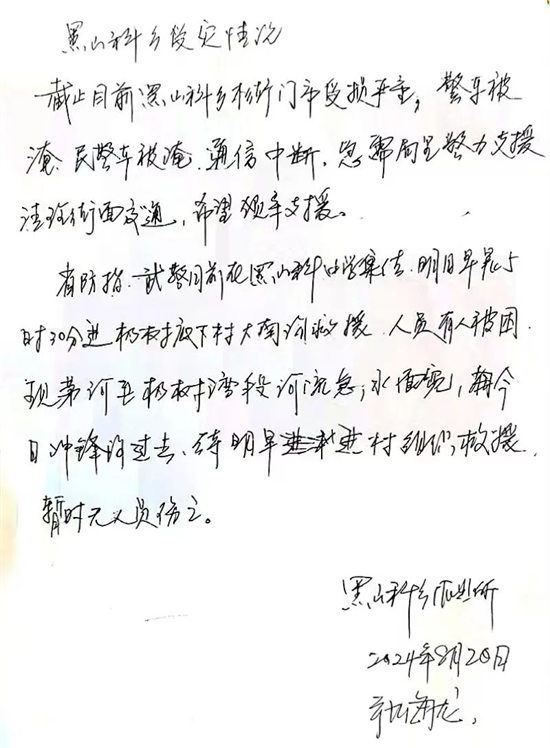 黑山科乡受灾情况
截止目前黑山科乡村街门市受损严重，警车被
淹、民警车被淹、通信中断，急需局里警力支援
清理街面交通，希望领导支援。
省防指、武警目前在黑山科中学集结，明日早晨5
时30分进 村 下村大南沟救援，人员有人被困，
现 河 村湾段河流急，水面宽，
日冲锋 过去、待明早进村组织救援，
暂时无人员伤亡。
黑山科乡派出所
2024年8月20日
海龙